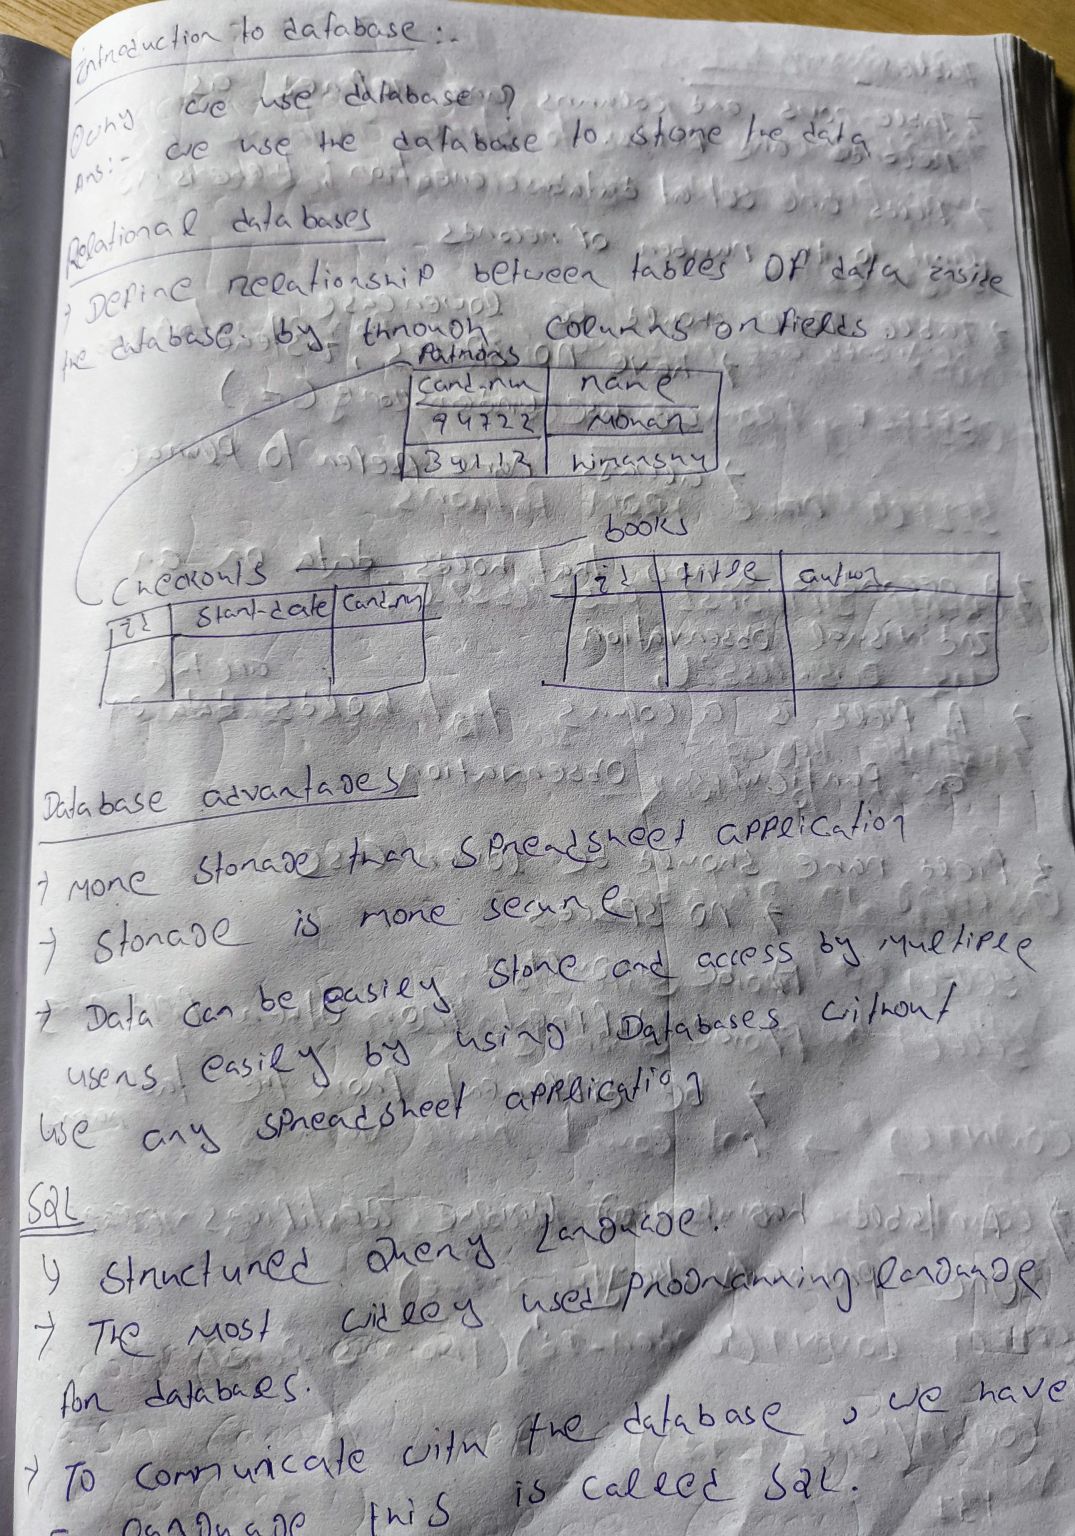 Introduction to database :-
Q why we use database ?
Ans:- we use the database to store the data
Relational databases
→ Define relationship between tables of data inside
the database. by through columns or fields
Patrons
card_num name
94722 Mohan
himanshu
books
Checkouts
id title author
id Start-date card_num
Database advantages
→ More storage than spreadsheet application
→ Storage is more secure
→ Data can be easily store and access by multiple
users easily by using Databases without
use any spreadsheet application
SQL
→ Structured Query Language.
→ The most widley used programming language
for databaes.
→ To communicate with the database, we have
language this is called SQL.